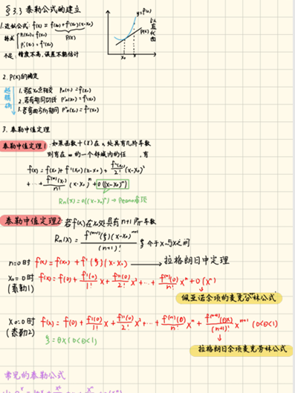 §3.3 泰勒公式的建立
1. 近似公式: f(x) = f(x₀)+f'(x₀)(x-x₀)
P(x)
特点 P(x₀)=f(x₀)
P'(x₀)=f'(x₀)
不足: 精度不高, 误差不能估计
y=f(x)
以直代曲
P(x)
x₀ x
2. P(x)的确定
1. 若在x₀点相交 Pₙ(x₀)=f(x₀)
2. 若有相同切线 P'ₙ(x₀)=f'(x₀)
3. 若弯曲方向相同 P''ₙ(x₀)=f''(x₀)
3. 泰勒中值定理
泰勒中值定理1: 如果函数f(x)在x₀处具有n阶导数
则存在x₀的一个邻域内的任 , 有
f(x)=f(x₀)+f'(x₀)(x-x₀)+f''(x₀)/2!(x-x₀)²
+ ··· + f⁽ⁿ⁾(x₀)/n!(x-x₀)ⁿ+o((x-x₀)ⁿ)
Rₙ(x)=o((x-x₀)ⁿ)→
泰勒中值定理2 若f(x)在x₀处具有n+1阶导数
Rₙ(x)=f⁽ⁿ⁺¹⁾(ξ)(x-x₀)ⁿ⁺¹/(n+1)! ξ介于x-x₀之间
n=0时 f(x)=f(x₀)+f'(ξ)(x-x₀) → 拉格朗日中定理
x₀=0时 f(x)=f(0)+f'(0)/1! x+f''(0)/2! x²+···+f⁽ⁿ⁾(0)/n! xⁿ+o(xⁿ)
(泰勒1)
佩亚诺余项的麦克劳林公式
x₀=0时 f(x)=f(0)+f'(0)/1! x+f''(0)/2! x²+···+f⁽ⁿ⁾(0)/n! xⁿ+f⁽ⁿ⁺¹⁾(θx)/(n+1)! xⁿ⁺¹ (0<θ<1)
(泰勒2) ξ=θx(0<θ<1)
拉格朗日余项麦克劳林公式
常见的泰勒公式